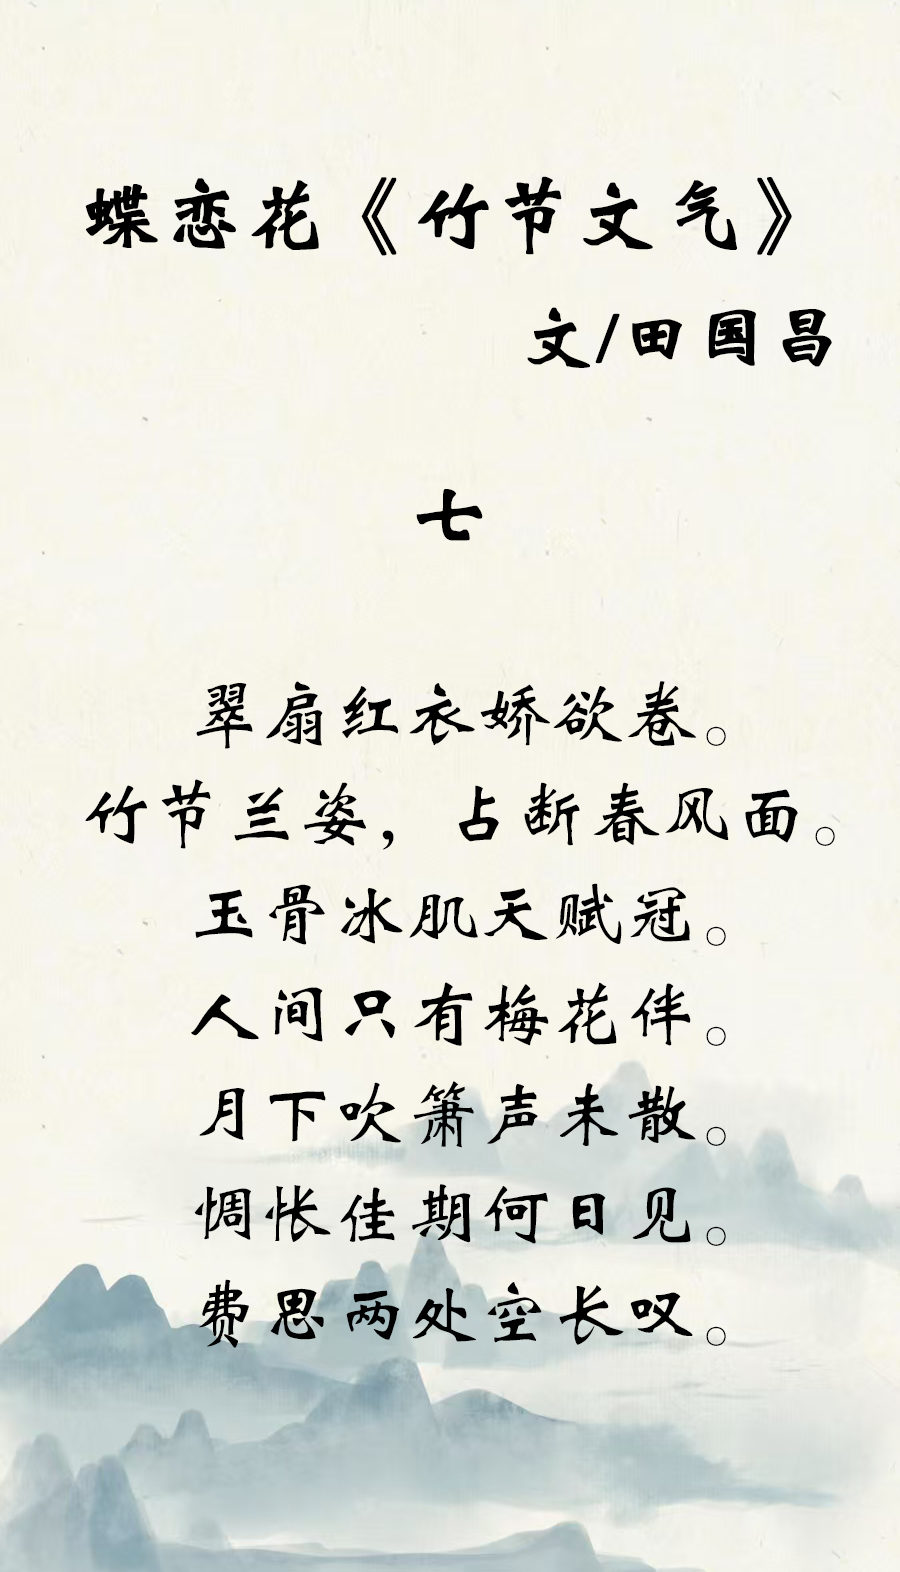 蝶恋花《竹节文气》
文/田国昌
七
翠扇红衣娇欲卷。
竹节兰姿，占断春风面。
玉骨冰肌天赋冠。
人间只有梅花伴。
月下吹箫声未散。
惆怅佳期何日见。
费思两处空长叹。